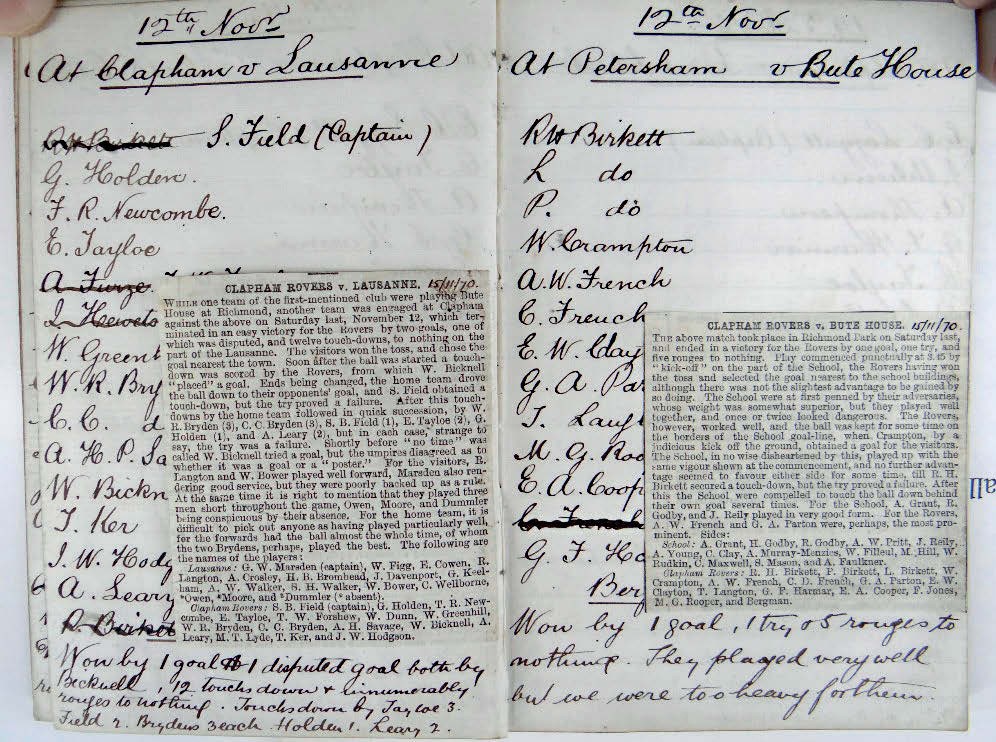 12th Novr
At Clapham v Lausanne
R H Birkett S. Field (Captain)
G. Holden.
F. R. Newcombe.
E. Tayloe
A Furze
J. Hewets
W. Greenh
W. R. Bry
C. C. d
A. H. P. Sa
W. Bickn
T. Ker
J. W. Hodg
A. Leary
R. Birket
Won by 1 goal & 1 disputed goal both by
Becknell, 12 touchs down & innumerably
rouges to nothing. Touchs down by Tayloe 3.
Field 2. Brydens 3 each. Holden 1. Leary 2.
CLAPHAM ROVERS v. LAUSANNE. 15/11/70.
WHILE one team of the first-mentioned club were playing Bute
House at Richmond, another team was engaged at Clapham
against the above on Saturday last, November 12, which ter-
minated in an easy victory for the Rovers by two goals, one of
which was disputed, and twelve touch-downs, to nothing on the
part of the Lausanne. The visitors won the toss, and chose the
goal nearest the town. Soon after the ball was started a touch-
down was scored by the Rovers, from which W. Bicknell
"placed" a goal. Ends being changed, the home team drove
the ball down to their opponents' goal, and S. Field obtained a
touch-down, but the try proved a failure. After this touch-
downs by the home team followed in quick succession, by W.
R. Bryden (3), C. C. Bryden (3), S. B. Field (1), E. Tayloe (2), G.
Holden (1), and A. Leary (2), but in each case, strange to
say, the try was a failure. Shortly before "no time" was
called W. Bicknell tried a goal, but the umpires disagree as to
whether it was a goal or a "poster." For the visitors, R.
Langton and W. Bower played well forward, Marsden also ren-
dering good service, but they were poorly backed up as a rule.
At the same time it is right to mention that they played three
men short throughout the game, Owen, Moore, and Dummler
being conspicuous by their absence. For the home team, it is
difficult to pick out anyone as having played particularly well,
for the forwards had the ball almost the whole time, of whom
the two Brydens, perhaps, played the best. The following are
the names of the players:
Lausanne: G. W. Marsden (captain), W. Figg, E. Cowen, R.
Langton, A. Crosley, H. B. Bromhead, J. Davenport, G. Keel-
ham, A. W. Walker, S. H. Walker, W. Bower, C. Wellborne,
*Owen, *Moore, and *Dummler (* absent).
Clapham Rovers: S. B. Field (captain), G. Holden, T. R. New-
combe, E. Tayloe, T. W. Forshew, W. Dunn, W. Greenhill,
W. R. Bryden, C. C. Bryden, A. H. Savage, W. Bicknell, A.
Leary, M. T. Lyde, T. Ker, and J. W. Hodgson.
12th Novr
At Petersham v Bute House
R H Birkett
L do
P. do
W. Crampton
A. W. French
C. French
E. W. Clay
G. A. Par
T. Laugt
M. G. Roo
E. A. Coop
G. F. Ha
Berg
Won by 1 goal, 1 try & 5 rouges to
nothing. They played very well
but we were too heavy for them.
CLAPHAM ROVERS v. BUTE HOUSE. 15/11/70.
THE above match took place in Richmond Park on Saturday last,
and ended in a victory for the Rovers by one goal, one try, and
five rouges to nothing. Play commenced punctually at 3.45 by
"kick-off" on the part of the School, the Rovers having won
the toss and selected the goal nearest to the school buildings,
although there was not the slightest advantage to be gained by
so doing. The School were at first penned by their adversaries,
whose weight was somewhat superior, but they played well
together, and once or twice looked dangerous. The Rovers,
however, worked well, and the ball was kept for some time on
the borders of the School goal-line, when Crampton, by a
judicious kick off the ground, obtained a goal for the visitors.
The School, in no wise disheartened by this, played up with the
same vigour shewn at the commencement, and no further advan-
tage seemed to favour either side for some time, till R. H.
Birkett secured a touch-down, but the try proved a failure. After
this the School were compelled to touch the ball down behind
their own goal several times. For the School, A. Grant, H.
Godby, and J. Reily played in very good form. For the Rovers,
A. W. French and G. A. Parton were, perhaps, the most pro-
minent. Sides:
School: A. Grant, H. Godby, R. Godby, A. W. Pritt, J. Reily,
A. Young, C. Clay, A. Murray-Menzies, W. Filleul, M. Hill, W.
Rudkin, C. Maxwell, S. Mason, and A. Faulkner.
Clapham Rovers: R. H. Birkett, P. Birkett, L. Birkett, W.
Crampton, A. W. French, C. D. French, G. A. Parton, E. W.
Clayton, T. Langton, G. F. Harmar, E. A. Cooper, F. Jones,
M. G. Rooper, and Bergman.